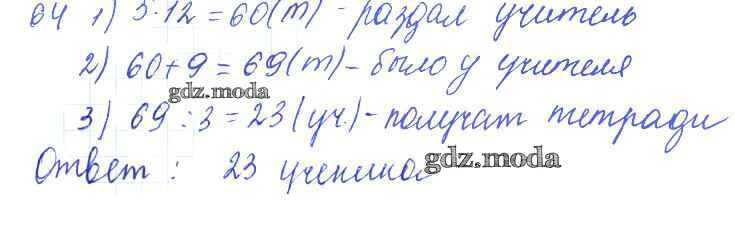 64 1) 5·12=60(т) - раздал учитель
2) 60+9=69(т) - было у учителя
gdz.moda
3) 69:3=23(уч.) - получат тетради
Ответ: 23 ученика
gdz.moda